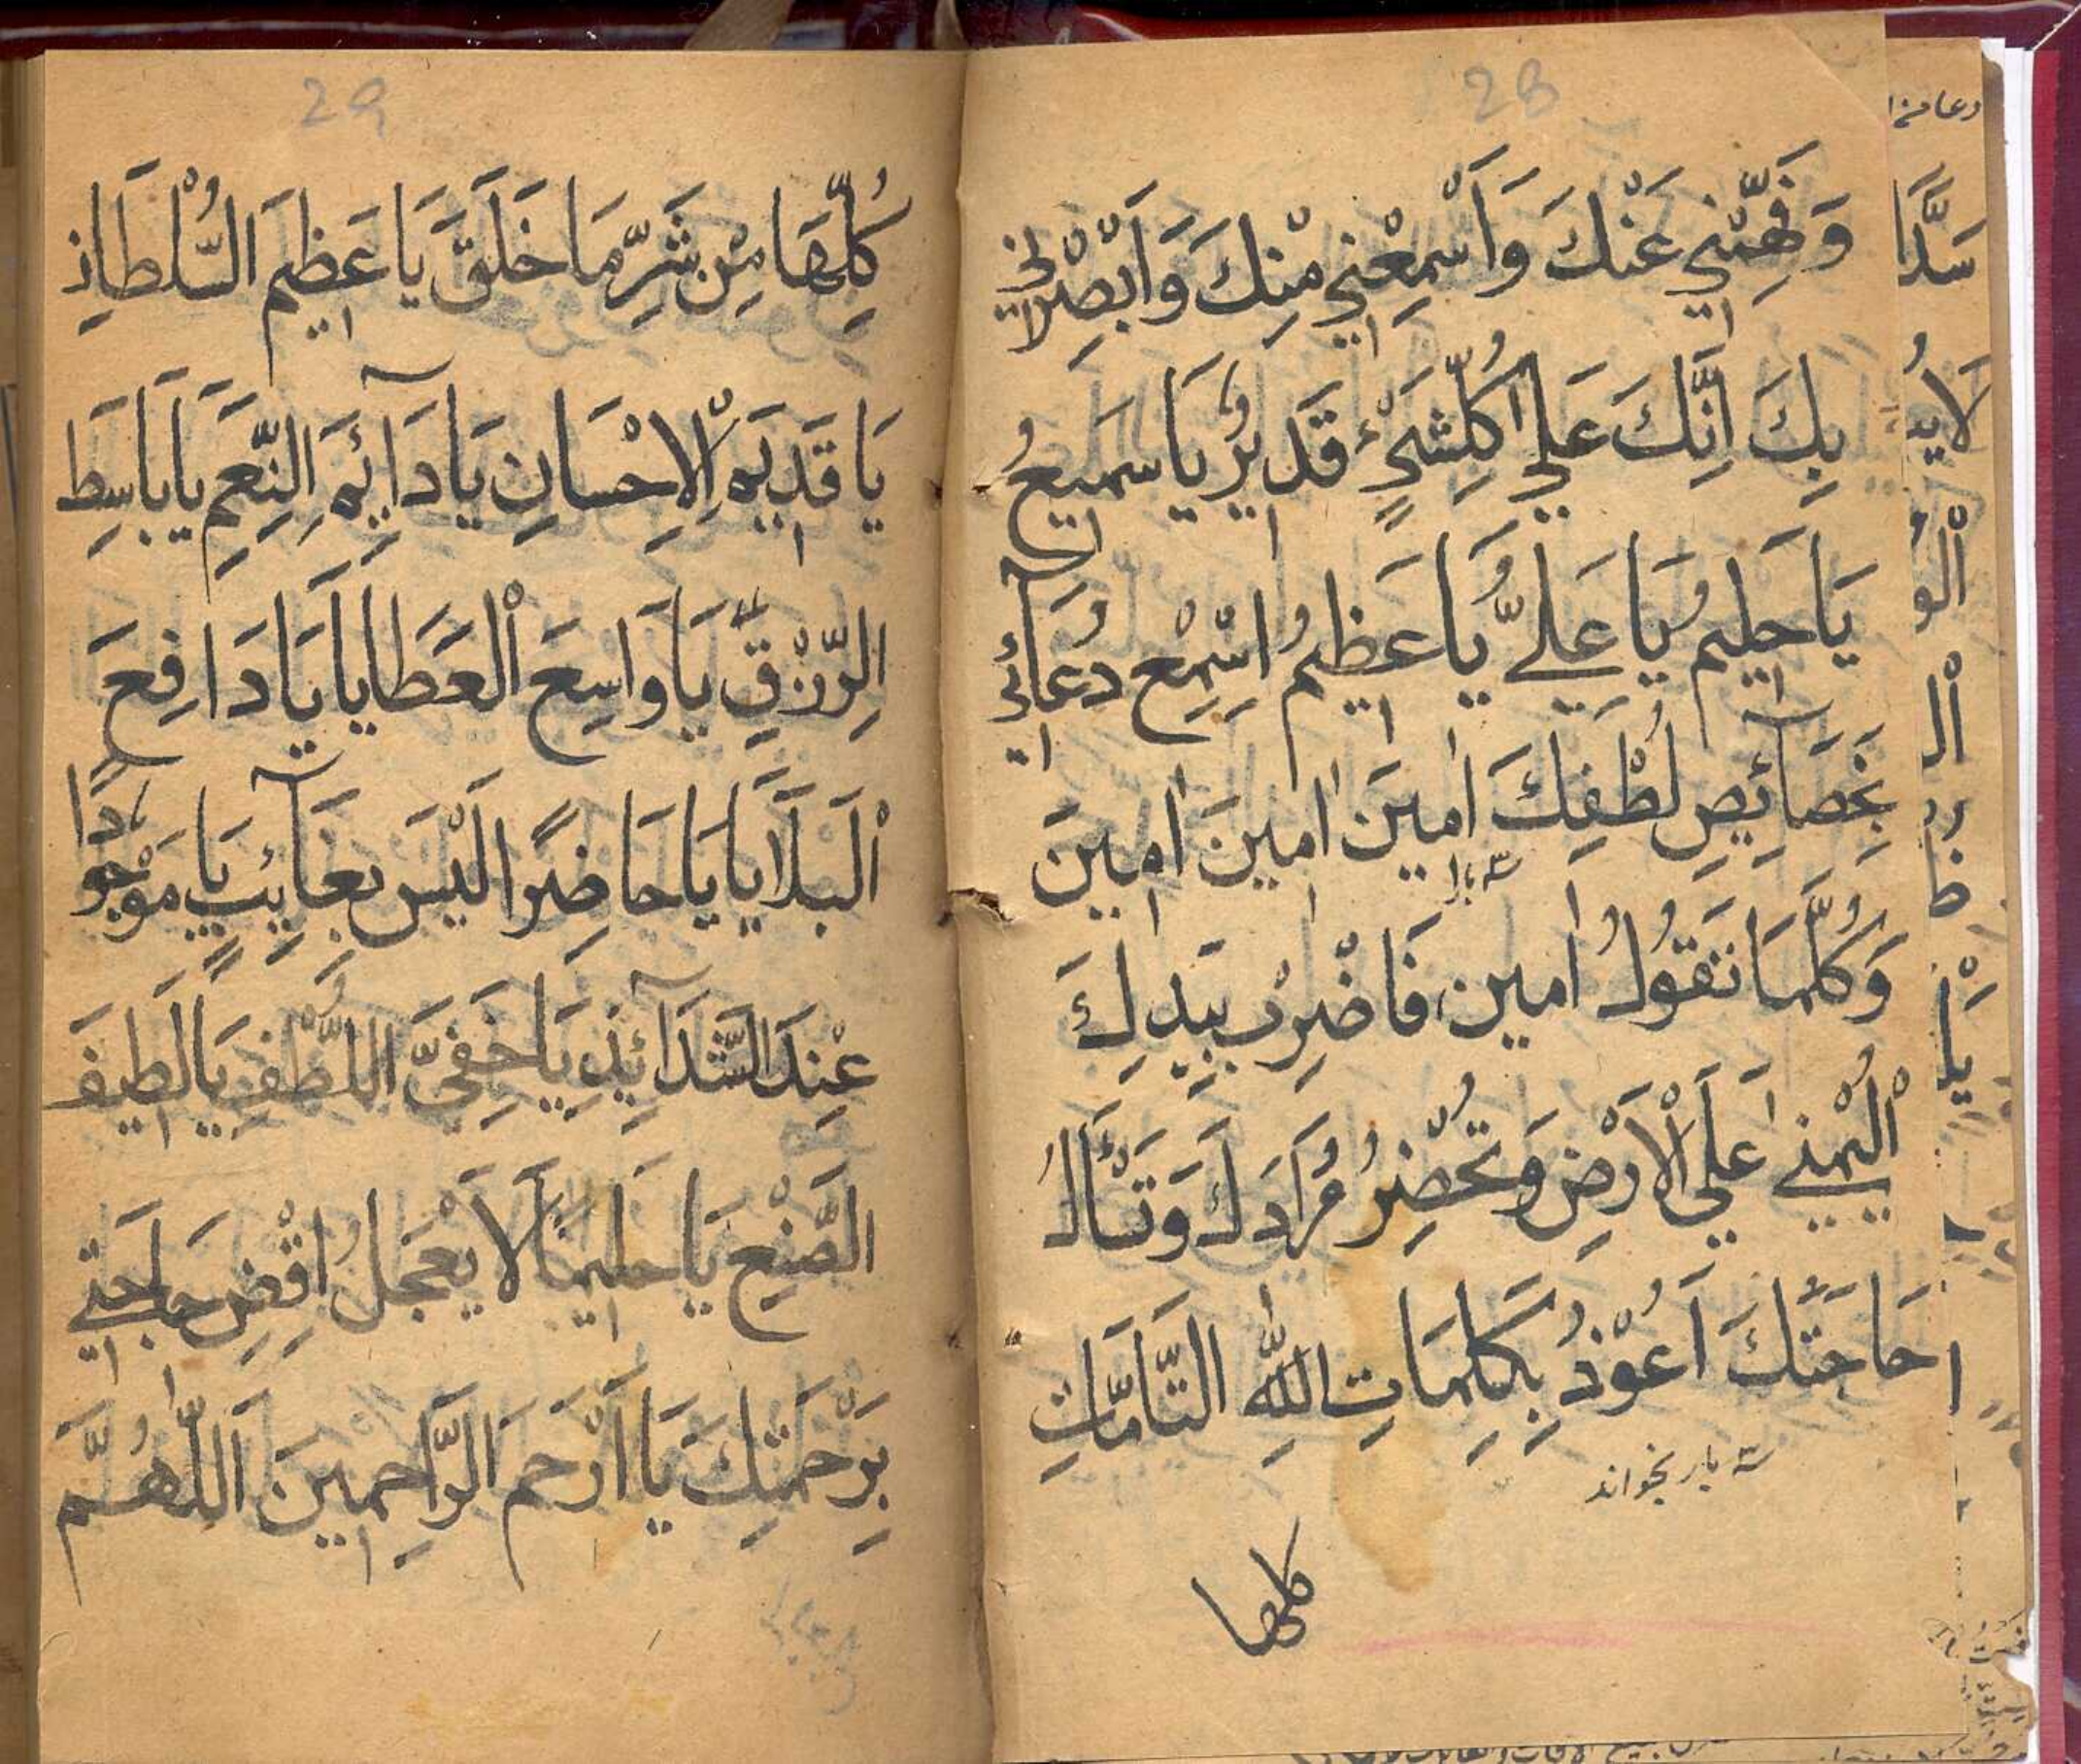 28
وَفَهِّمْنِي عَنْكَ وَاَسْمِعْنِي مِنْكَ وَاَبْصِرْنِي
بِكَ اِنَّكَ عَلٰي كُلِّ شَيْءٍ قَدِيْرٌ يَا سَمِيعُ
يَا حَلِيمُ يَا عَلِيُّ يَا عَظِيمُ اِسْمِعْ دُعَآئِي
بِخَصَآئِصِ لُطْفِكَ اٰمِينَ اٰمِينَ اٰمِينَ
سه بار
وَكُلَّمَا تَقُولُ اٰمِين فَاضْرِبْ بِيَدِكَ
الْيُمْنٰي عَلَي الْاَرْضِ وَتُحْضِرُ مُرَادَكَ وَتَسْأَلُ
حَاجَتَكَ اَعُوْذُ بِكَلِمَاتِ اللّٰهِ التَّآمَّاتِ
سه بار بخواند
كلها
29
كُلِّهَا مِنْ شَرِّ مَا خَلَقَ يَا عَظِيمَ السُّلْطَانِ
يَا قَدِيمَ الْاِحْسَانِ يَا دَآئِمَ النِّعَمِ يَا بَاسِطَ
الرِّزْقِ يَا وَاسِعَ الْعَطَايَا يَا دَافِعَ
الْبَلَايَا يَا حَاضِرًا لَيْسَ بِغَآئِبٍ يَا مَوْجُودًا
عِنْدَ الشَّدَآئِدِ يَا خَفِيَّ اللُّطْفِ يَا لَطِيفَ
الصُّنْعِ يَا حَلِيمًا لَا يَعْجَلُ اِقْضِ حَاجَتِي
بِرَحْمَتِكَ يَا اَرْحَمَ الرَّاحِمِينَ اَللّٰهُمَّ